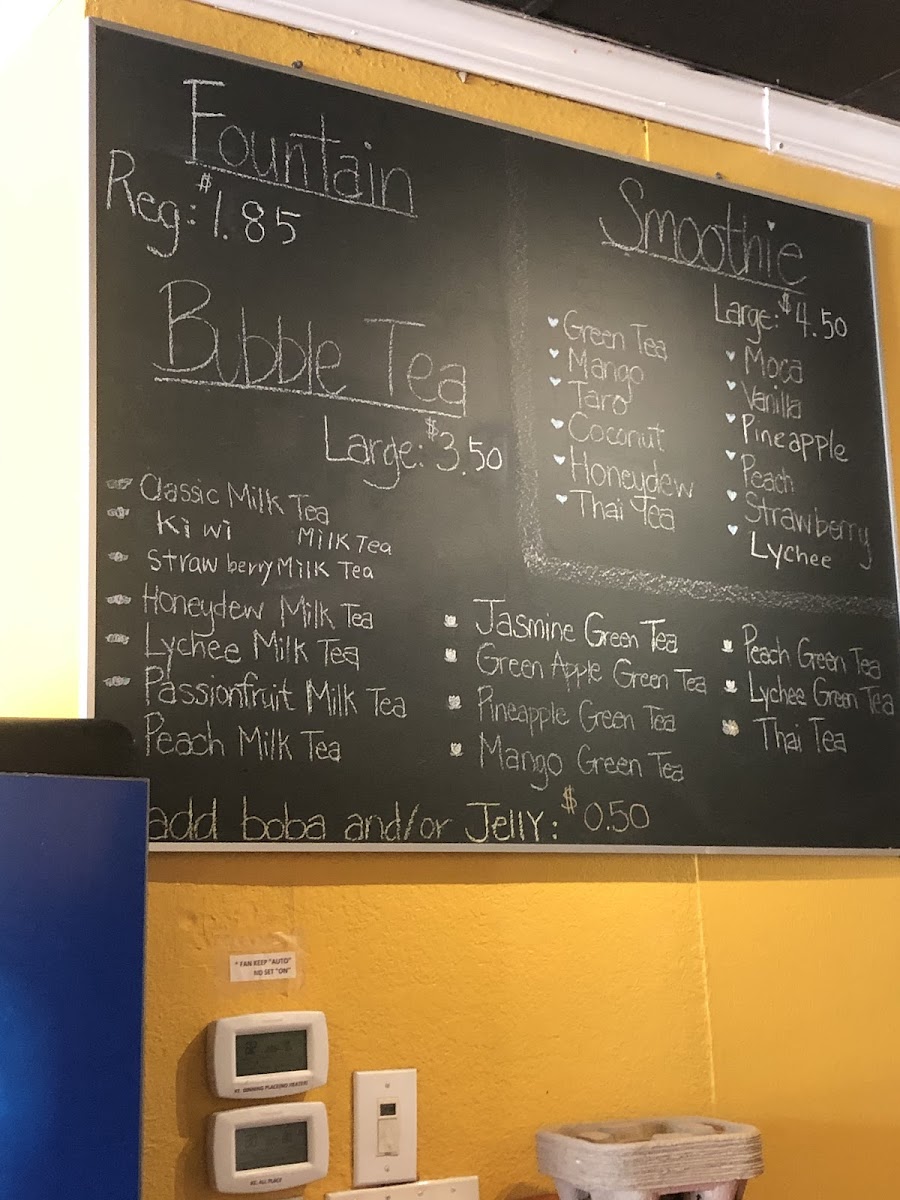 Fountain
Reg: $1.85
Bubble Tea
Large: $3.50
Classic Milk Tea
Kiwi Milk Tea
Strawberry Milk Tea
Honeydew Milk Tea
Lychee Milk Tea
Passionfruit Milk Tea
Peach Milk Tea
Jasmine Green Tea
Green Apple Green Tea
Pineapple Green Tea
Mango Green Tea
Peach Green Tea
Lychee Green Tea
Thai Tea
add boba and/or Jelly: $0.50
Smoothie
Large: $4.50
Green Tea
Mango
Taro
Coconut
Honeydew
Thai Tea
Moca
Vanilla
Pineapple
Peach
Strawberry
Lychee
* FAN KEEP "AUTO"
NO SET "ON"